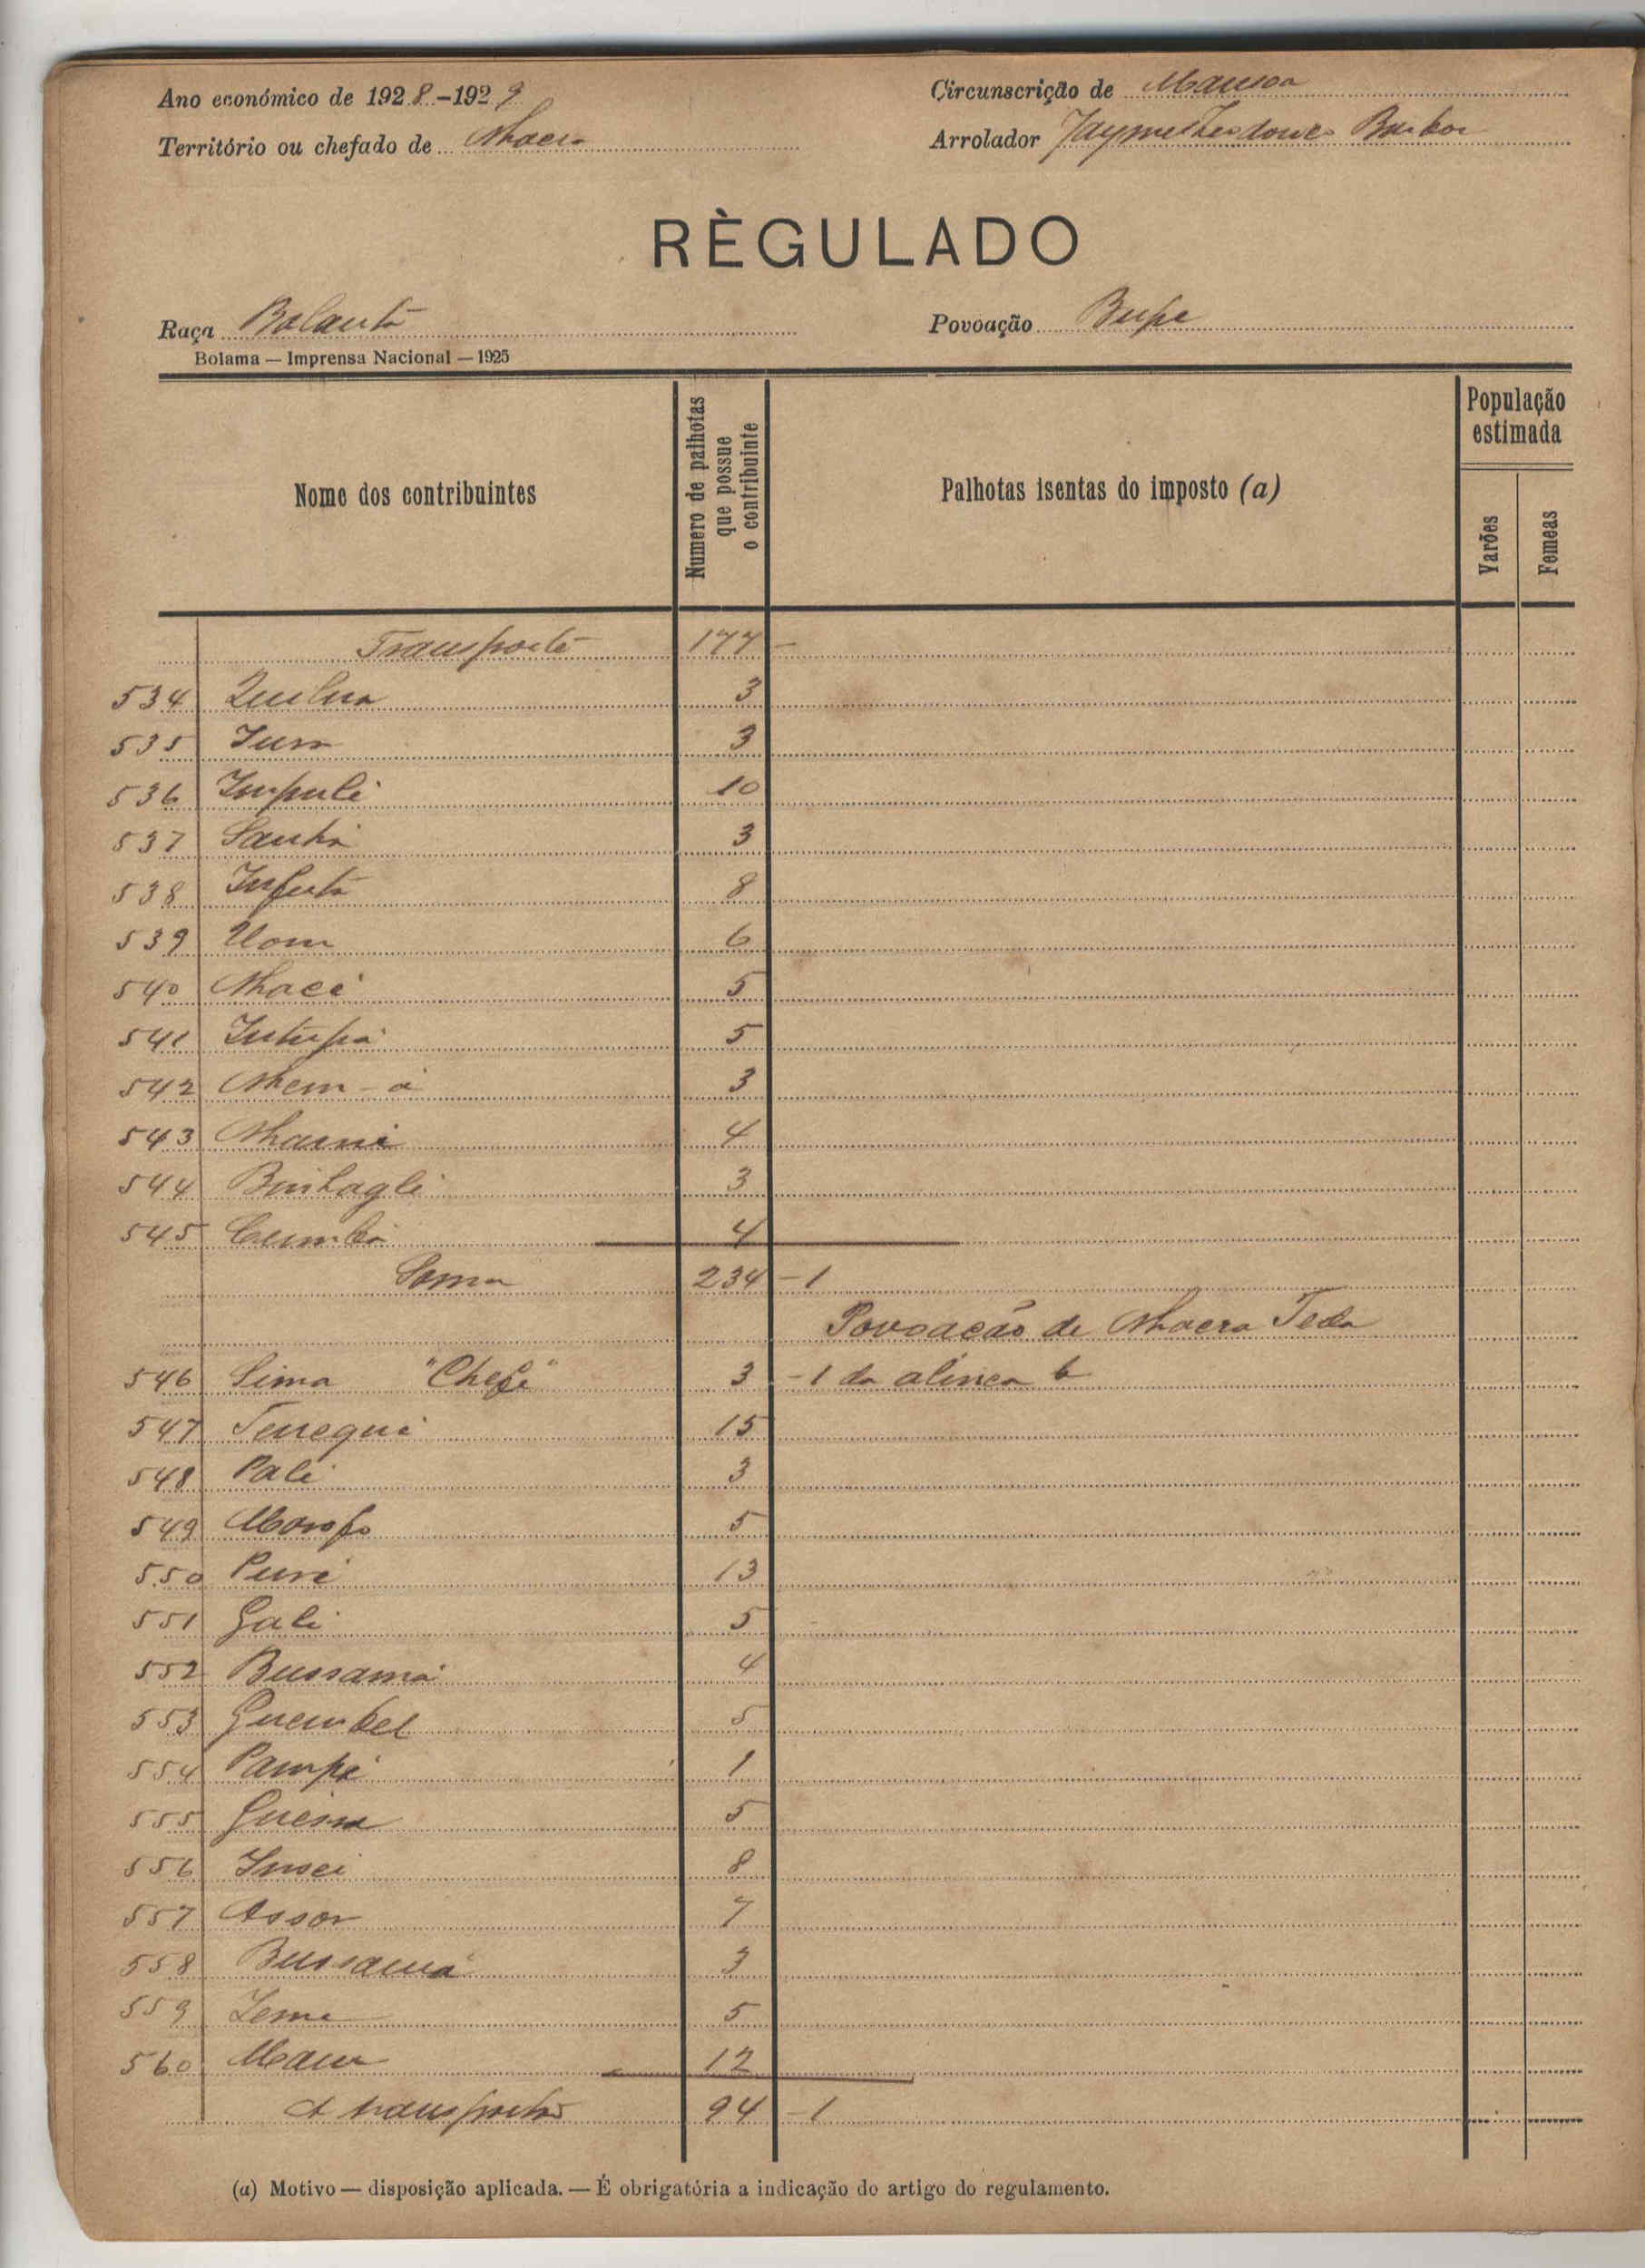 Ano económico de 1928-1929
Circunscrição de Mansoa
Território ou chefado de Nhacra
Arrolador Jayme Theodorico Barbosa
RÈGULADO
Raça Balanta
Povoação Bupe
Bolama — Imprensa Nacional — 1925
Nome dos contribuintes
Numero de palhotas que possue o contribuinte
Palhotas isentas do imposto (a)
População estimada
Varões
Femeas
Transporte 177 -
534 3
535 3
536 Impuli 10
537 Sanhá 3
538 8
539 Uom 6
540 Nhacé 5
541 Intupá 5
542 Nhem-á 3
543 4
544 3
545 Cumbá 4
Soma 234 -1
Povoação de Nhacra Teda
546 Sima "Chefe" 3 -1 da alinea b
547 15
548 Pali 3
549 5
550 13
551 Gali 5
552 Bussamá 4
553 Guembel 5
554 Pampé 1
555 5
556 8
557 Assor 7
558 Bussamá 3
559 5
560 12
A transportar 94 -1
(a) Motivo — disposição aplicada. — É obrigatória a indicação do artigo do regulamento.